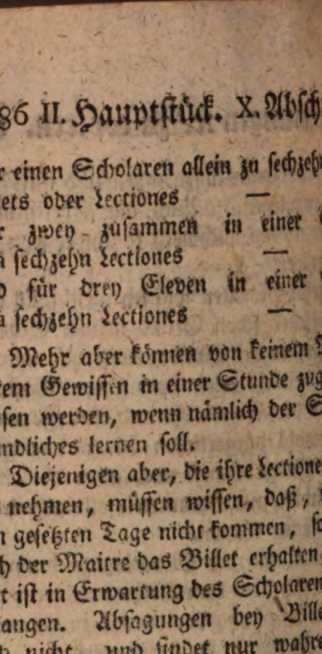 86 II. Hauptstück. X. Absch
r einen Scholaren allein zu sechzeh
ets oder Lectiones —
r zwey zusammen in einer
a sechzehn Lectiones —
d für drey Eleven in einer
a sechzehn Lectiones —
Mehr aber können von keinem
em Gewissen in einer Stunde zug
sen werden, wenn nämlich der S
ndliches lernen soll.
Diejenigen aber, die ihre Lectione
nehmen, müssen wissen, daß,
n gesetzten Tage nicht kommen, so
h der Maitre das Billet erhalten
t ist in Erwartung des Scholaren
angen. Absagungen bey Bille
nicht, und findet nur wahre